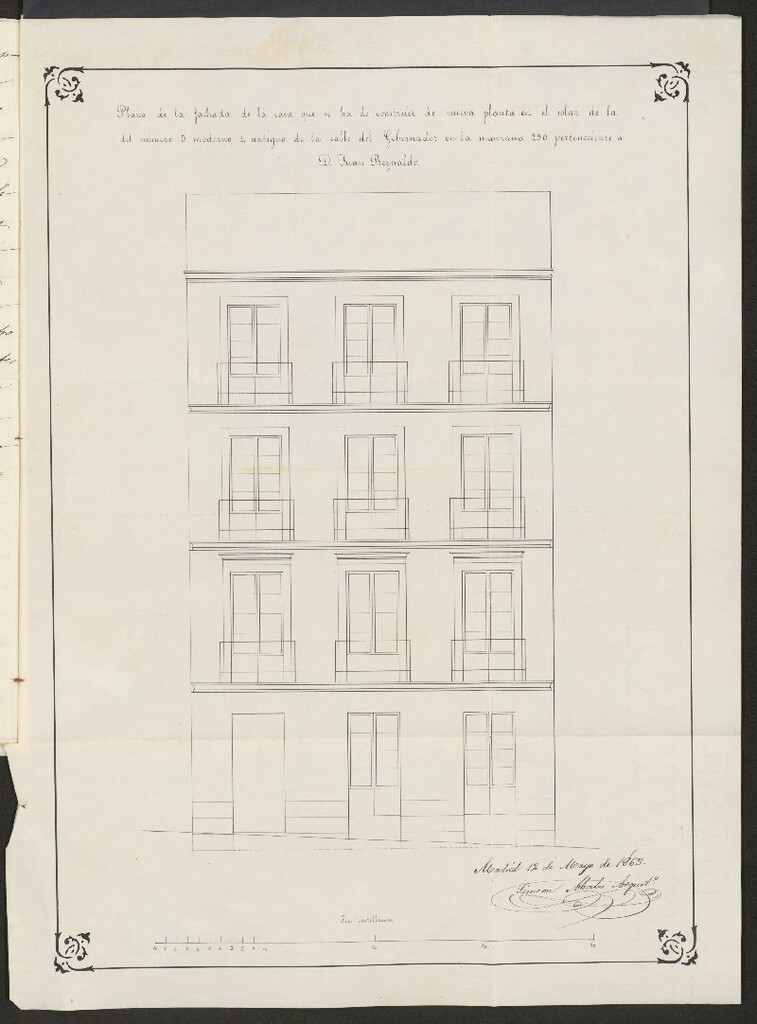 Plano de la fachada de la casa que se ha de construir de nueva planta en el solar de la
del numero 5 moderno 2 antiguo de la calle del Gobernador en la manzana 250 perteneciente a
D. Juan Reynaldo.
Madrid 12 de Mayo de 1863.
Simeon Mateo Arquit.º
Pies castellanos